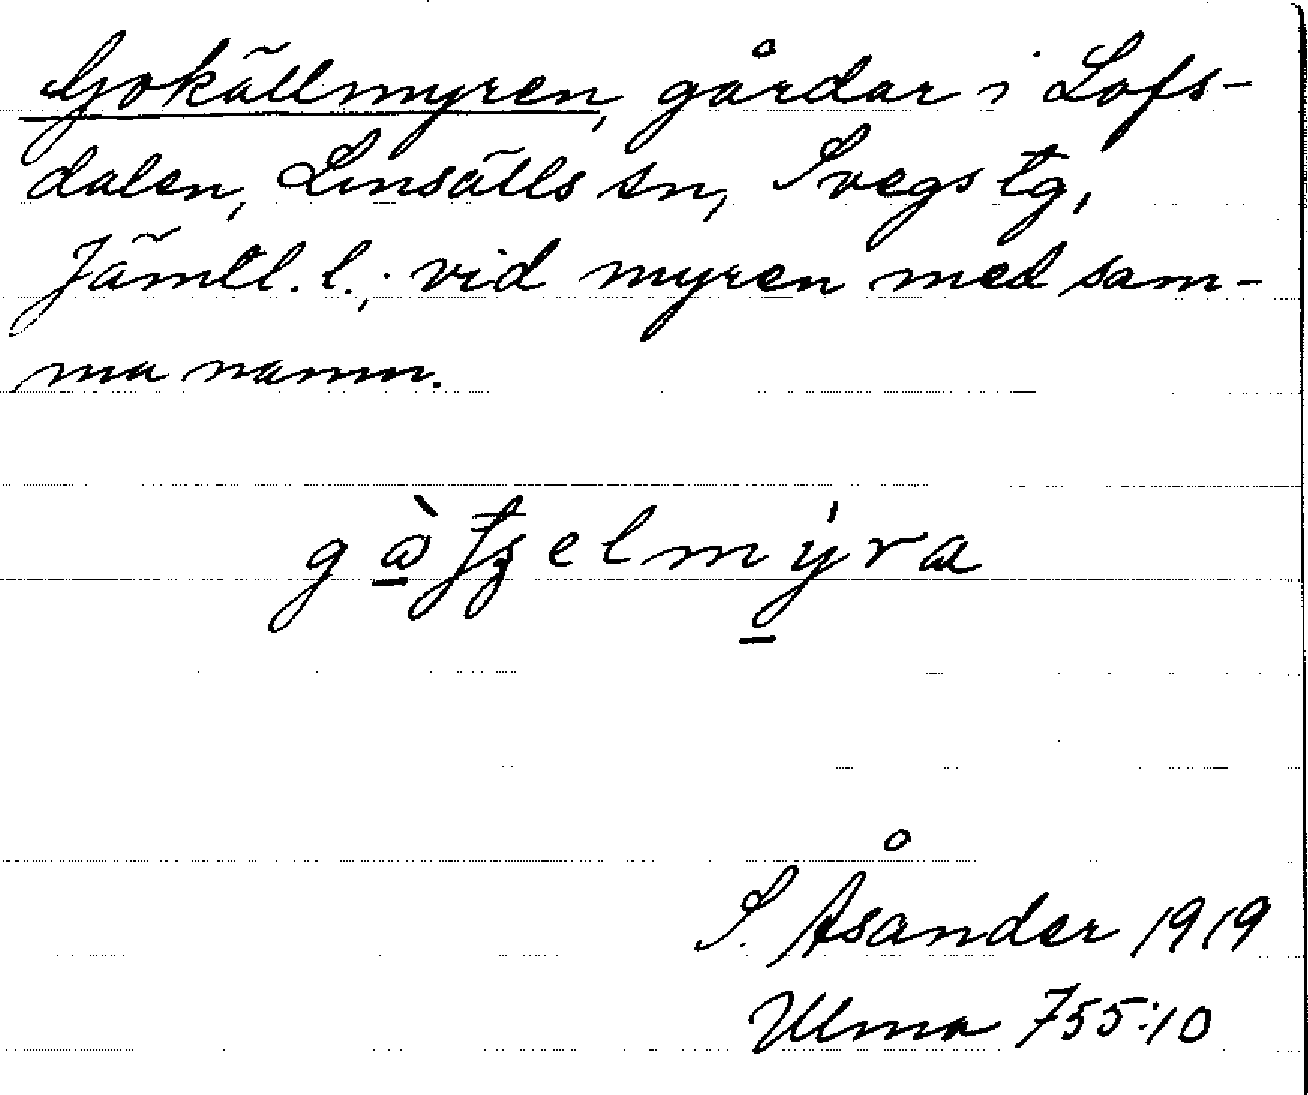 Gokällmyren, gårdar i Lofs-
dalen, Linsälls sn, Svegs tg,
Jämtl. l.; vid myren med sam-
ma namn.
S. Åsander 1919
Ulma 755:10